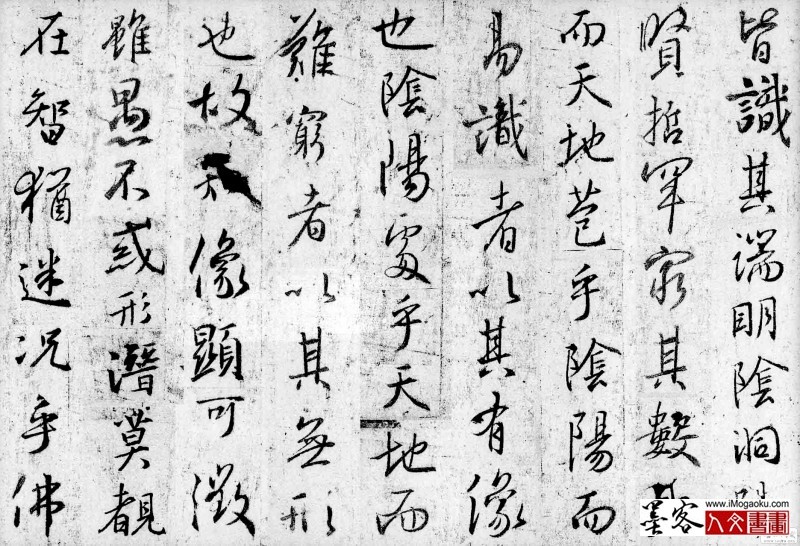 皆識其端明陰洞
賢哲罕窮其數
而天地苞乎陰陽而
易識者以其有像
也陰陽處乎天地而
難窮者以其無形
也故知像顯可徵
雖愚不惑形潛莫覩
在智猶迷況乎佛
www.iMogaoku.com
墨客 人文書畫